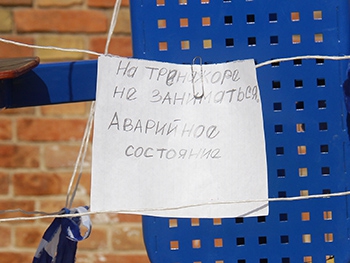 На тренажоре
не заниматься,
Аварийное
состояние